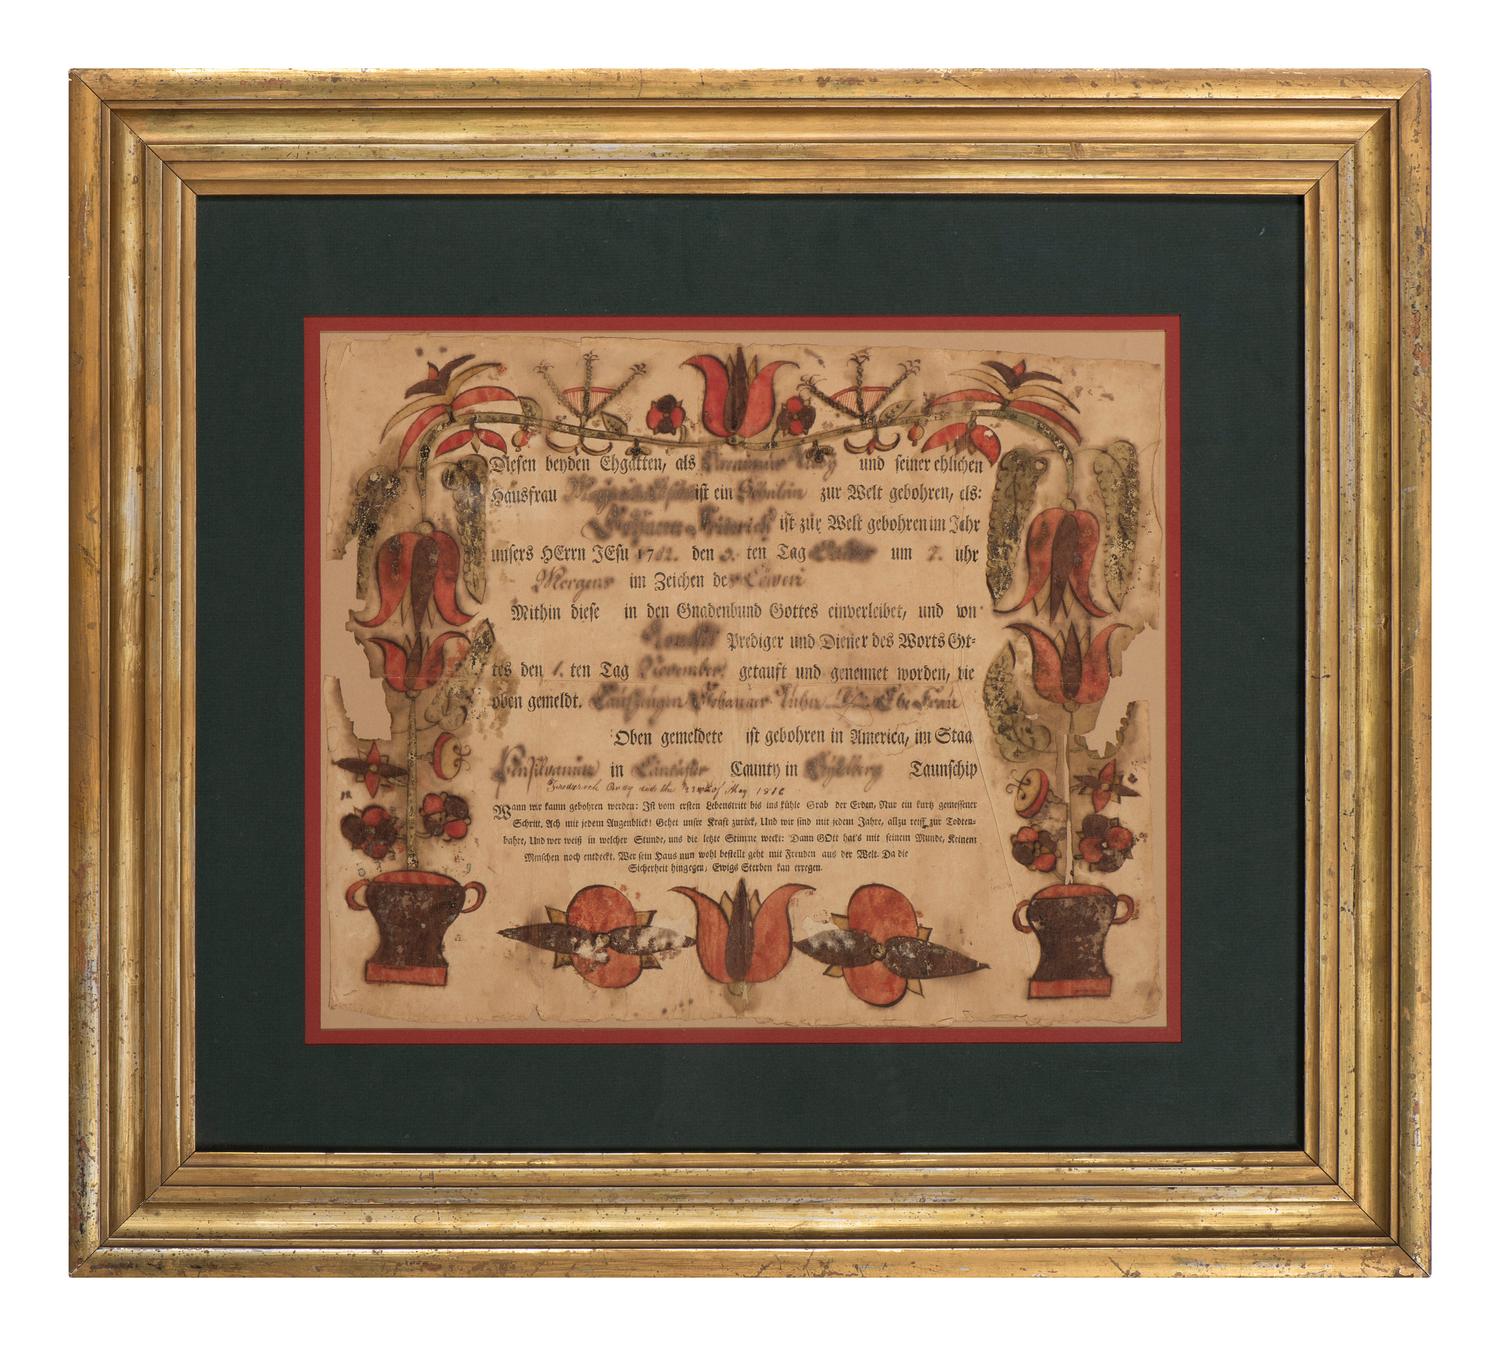 Diesen beyden Ehgatten, als und seiner ehlichen
Hausfrau ist ein Söhnlein zur Welt gebohren, als:
Johann Fridrich ist zur Welt gebohren im Jahr
unsers HErrn JEsu 1782. den 3. ten Tag um 7. uhr
Morgens im Zeichen des Löwen
Mithin diese in den Gnadenbund Gottes einverleibet, und von
Prediger und Diener des Worts Got-
tes den 1. ten Tag November getauft und genennet worden, wie
oben gemeldt. Taufzeugen Johannes Huber Ehe Frau
Oben gemeldete ist gebohren in America, im Staa
Pensilvanien in Lancaster Caunty in Heidelberg Taunschip
died the of May 18
Wann wir kaum gebohren werden: Ist vom ersten Lebenstritt bis ins kühle Grab der Erden, Nur ein kurtz gemessener
Schritt. Ach mit jedem Augenblick! Gehet unsre Kraft zurück, Und wir sind mit jedem Jahre, allzu reiff zur Todten-
bahre, Und wer weiß in welcher Stunde, uns die letzte Stimme weckt: Dann GOtt hat's mit seinem Munde, Keinem
Menschen noch entdeckt. Wer sein Haus nun wohl bestellt geht mit Freuden aus der Welt. Da die
Sicherheit hingegen, Ewigs Sterben kan erregen.